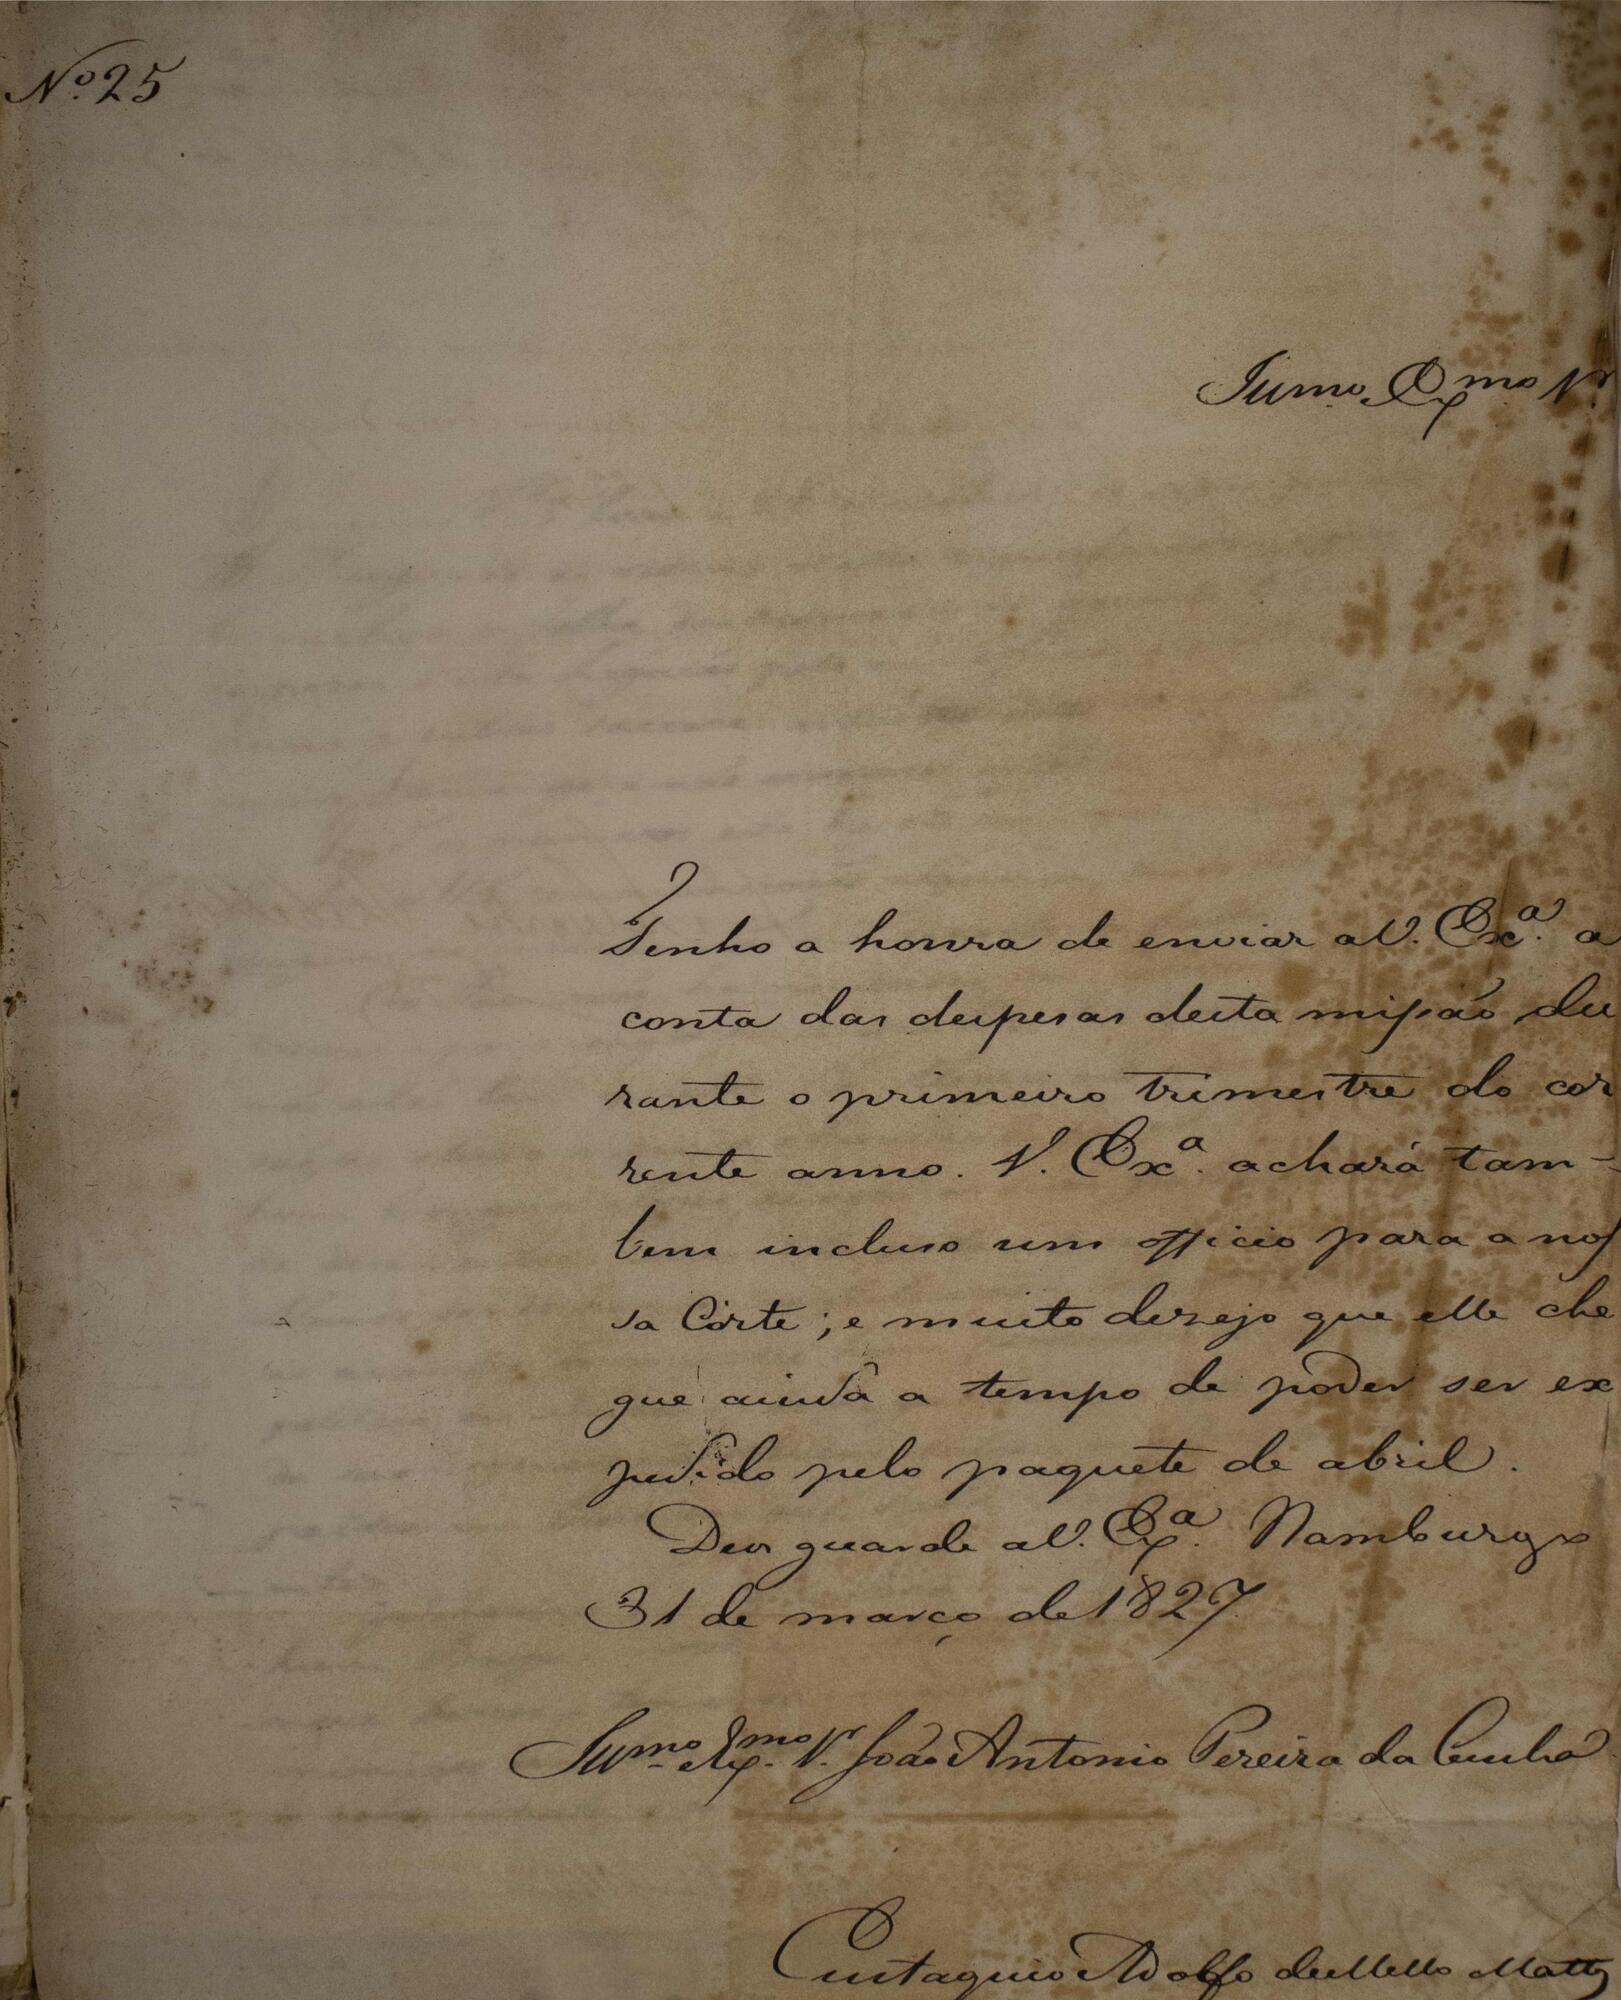 Nº 25
Illmo. Exmo. Sr.
Tenho a honra de enviar a V. Exª. a
conta das despesas desta missão du
rante o primeiro trimestre do cor
rente anno. V. Exª. achará tam-
bem incluso um officio para a nos
sa Côrte; e muito desejo que elle che
gue ainda a tempo de poder ser ex
pedido pelo paquete de abril.
Deos guarde a V. Exª. Hamburgo
31 de março de 1827
Illmo. Exmo. Sr. João Antonio Pereira da Cunha
Eustaquio Adolfo de Mello Mattos